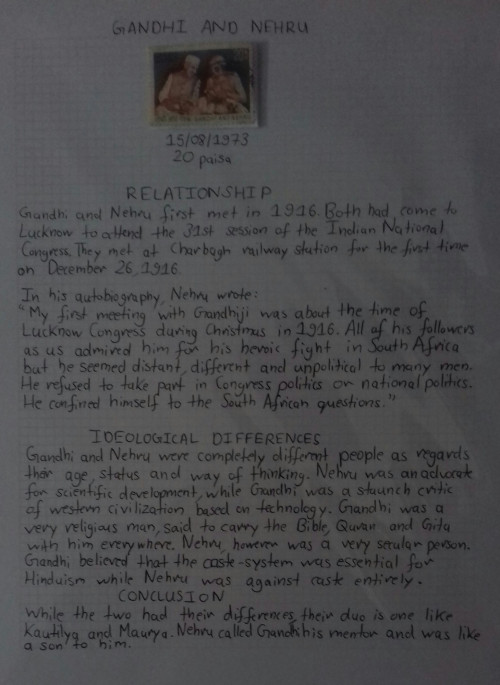 GANDHI AND NEHRU
15/08/1973
20 paisa
RELATIONSHIP
Gandhi and Nehru first met in 1916. Both had come to
Lucknow to attend the 31st session of the Indian National
Congress. They met at Charbagh railway station for the first time
on December 26, 1916.
In his autobiography, Nehru wrote:
"My first meeting with Gandhiji was about the time of
Lucknow Congress during Christmas in 1916. All of his followers
as us admired him for his heroic fight in South Africa
but he seemed distant, different and unpolitical to many men.
He refused to take part in Congress politics or national politics.
He confined himself to the South African questions."
IDEOLOGICAL DIFFERENCES
Gandhi and Nehru were completely different people as regards
their age, status and way of thinking. Nehru was an advocate
for scientific development, while Gandhi was a staunch critic
of western civilization based on technology. Gandhi was a
very religious man, said to carry the Bible, Quran and Gita
with him everywhere. Nehru, however was a very secular person.
Gandhi believed that the caste-system was essential for
Hinduism while Nehru was against caste entirely.
CONCLUSION
While the two had their differences, their duo is one like
Kautilya and Maurya. Nehru called Gandhi his mentor and was like
a son to him.